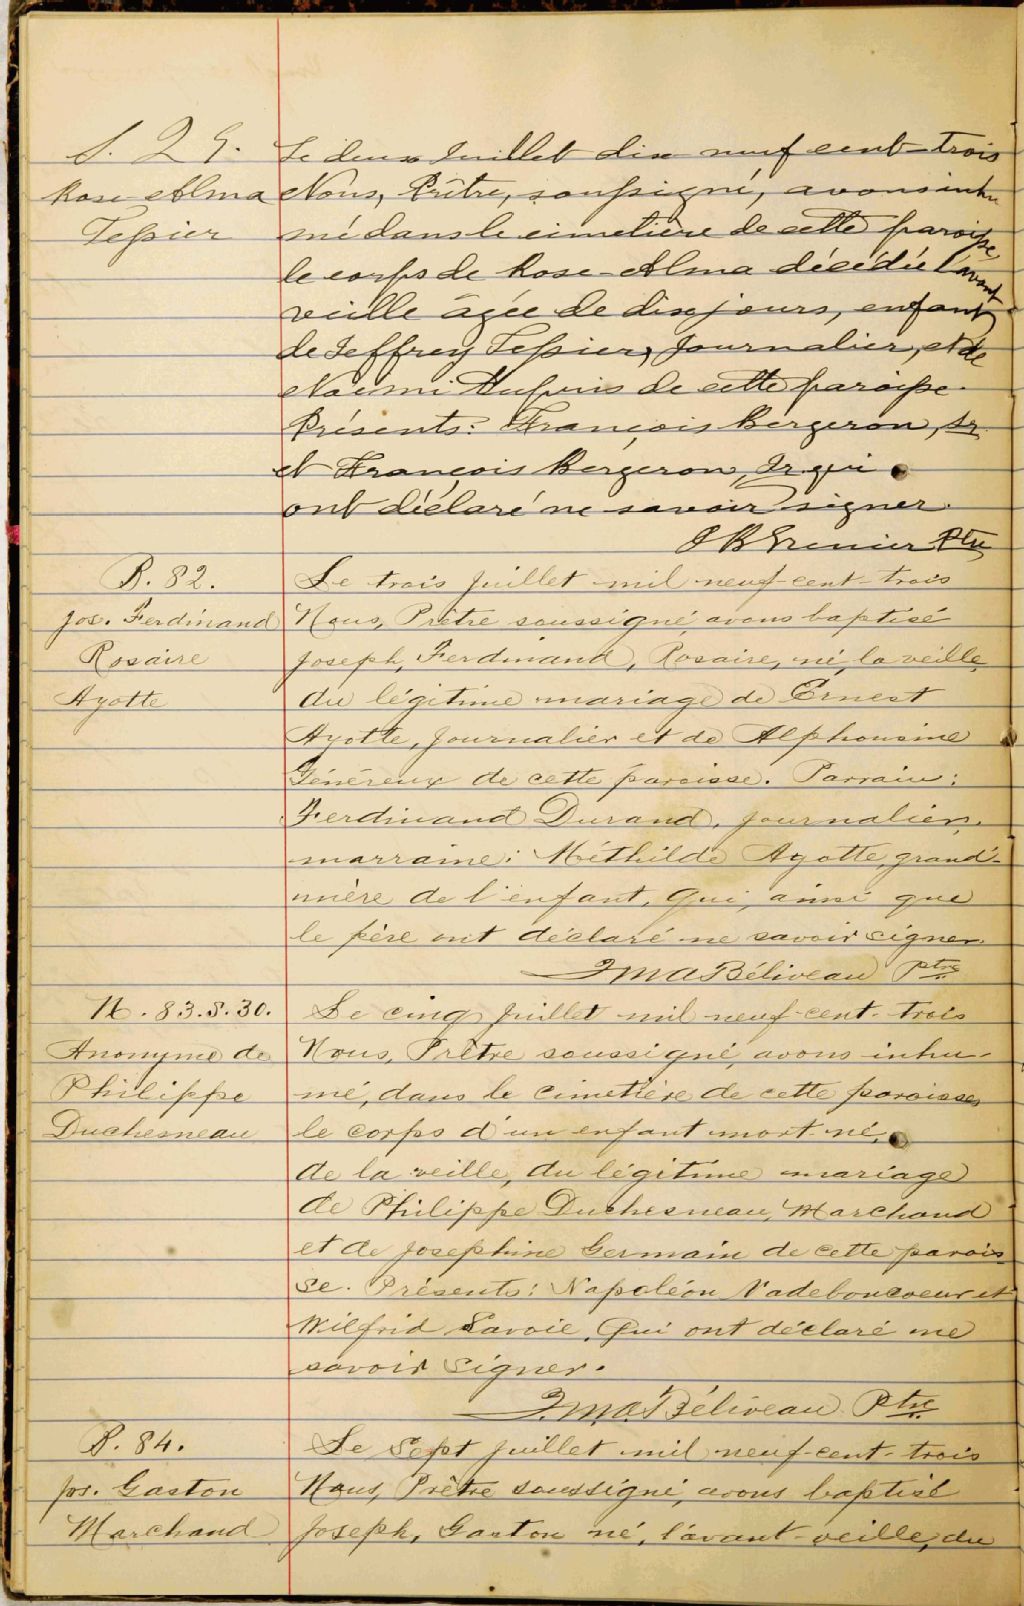 S. 29.
Rose-Alma
Tessier
Le deux Juillet dix neuf cent-trois
Nous, Prêtre, soussigné, avons inhu
mé dans le cimetière de cette paroisse
le corps de Rose-Alma décédée l'avant
veille âgée de dix jours, enfant
de Jeffrey Tessier, journalier, et de
Noémi Dupuis de cette paroisse.
Présents: François Bergeron, sr.
et François Bergeron, Jr qui
ont déclaré ne savoir signer.
J B Grenier Ptre
B. 82.
Jos. Ferdinand
Rosaire
Ayotte
Le trois Juillet mil neuf-cent-trois
Nous, Prêtre soussigné, avons baptisé
Joseph, Ferdinand, Rosaire, né, la veille,
du légitime mariage de Ernest
Ayotte, journalier et de Alphonsine
Généreux de cette paroisse. Parrain:
Ferdinand Durand, journalier,
marraine: Méthilde Ayotte, grand'-
mère de l'enfant, qui, ainsi que
le père ont déclaré ne savoir signer.
J M A Béliveau Ptre
N. 83. S. 30.
Anonyme de
Philippe
Duchesneau
Le cinq Juillet mil neuf-cent-trois
Nous, Prêtre soussigné, avons inhu-
mé, dans le cimetière de cette paroisse,
le corps d'un enfant mort-né,
de la veille, du légitime mariage
de Philippe Duchesneau, Marchand
et de Josephine Germain de cette parois-
se. Présents: Napoléon Vadeboncoeur et
Wilfrid Savoie. Qui ont déclaré ne
savoir signer.
J. M. A. Béliveau Ptre
B. 84.
Jos. Gaston
Marchand
Le Sept Juillet mil neuf-cent-trois
Nous, Prêtre soussigné, avons baptisé
Joseph, Gaston né, l'avant-veille, du